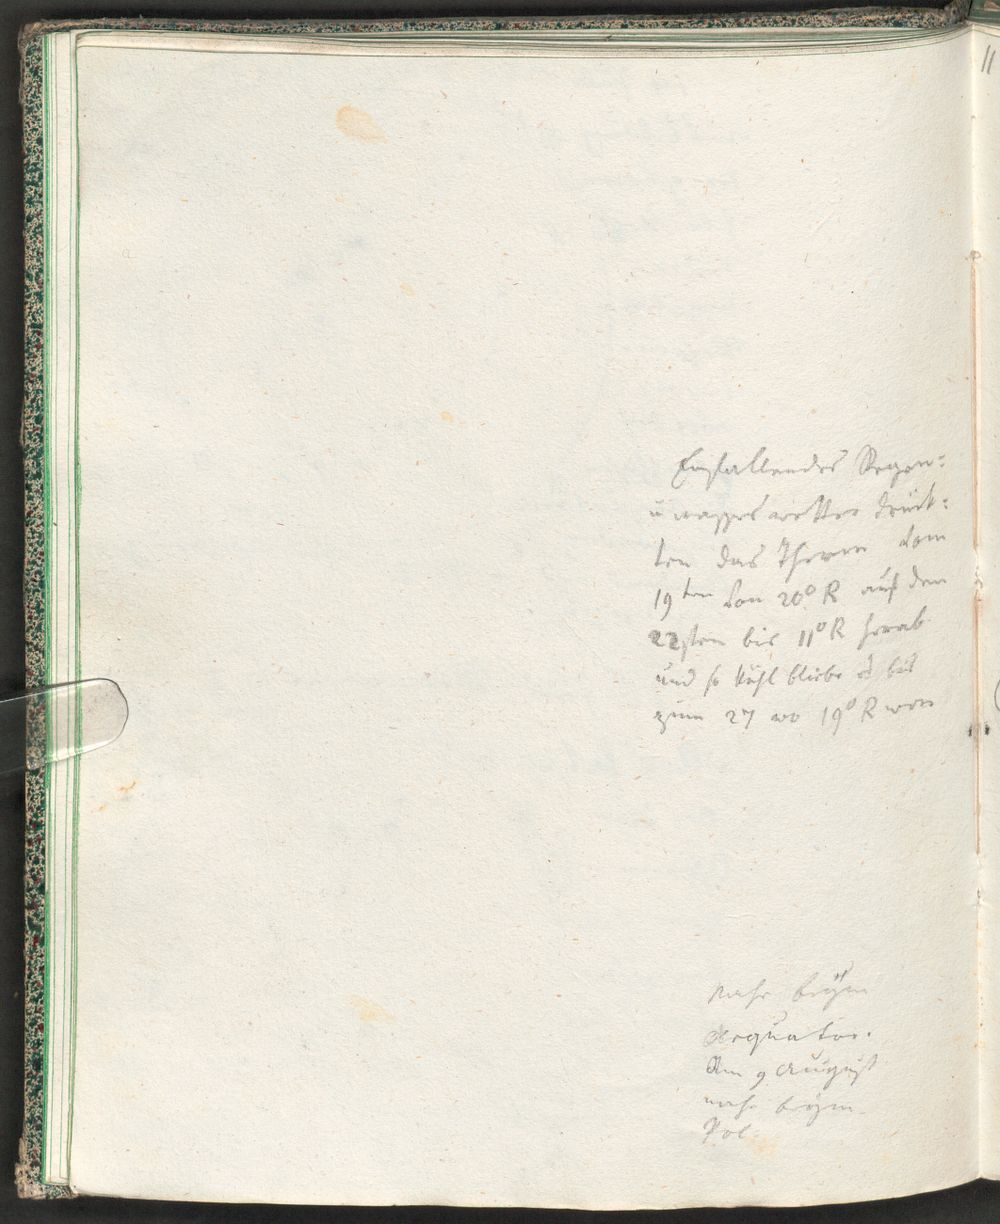 Einfallendes Regen-
u nasses wetter drück-
ten das Therm vom
19ten von 20° R auf den
22sten bis 11° R herab
und so kühl bliebe es bis
zum 27 wo 19° R war
nahe beÿm
Aequator.
Am 9 August
nahe beÿm
Pol
11